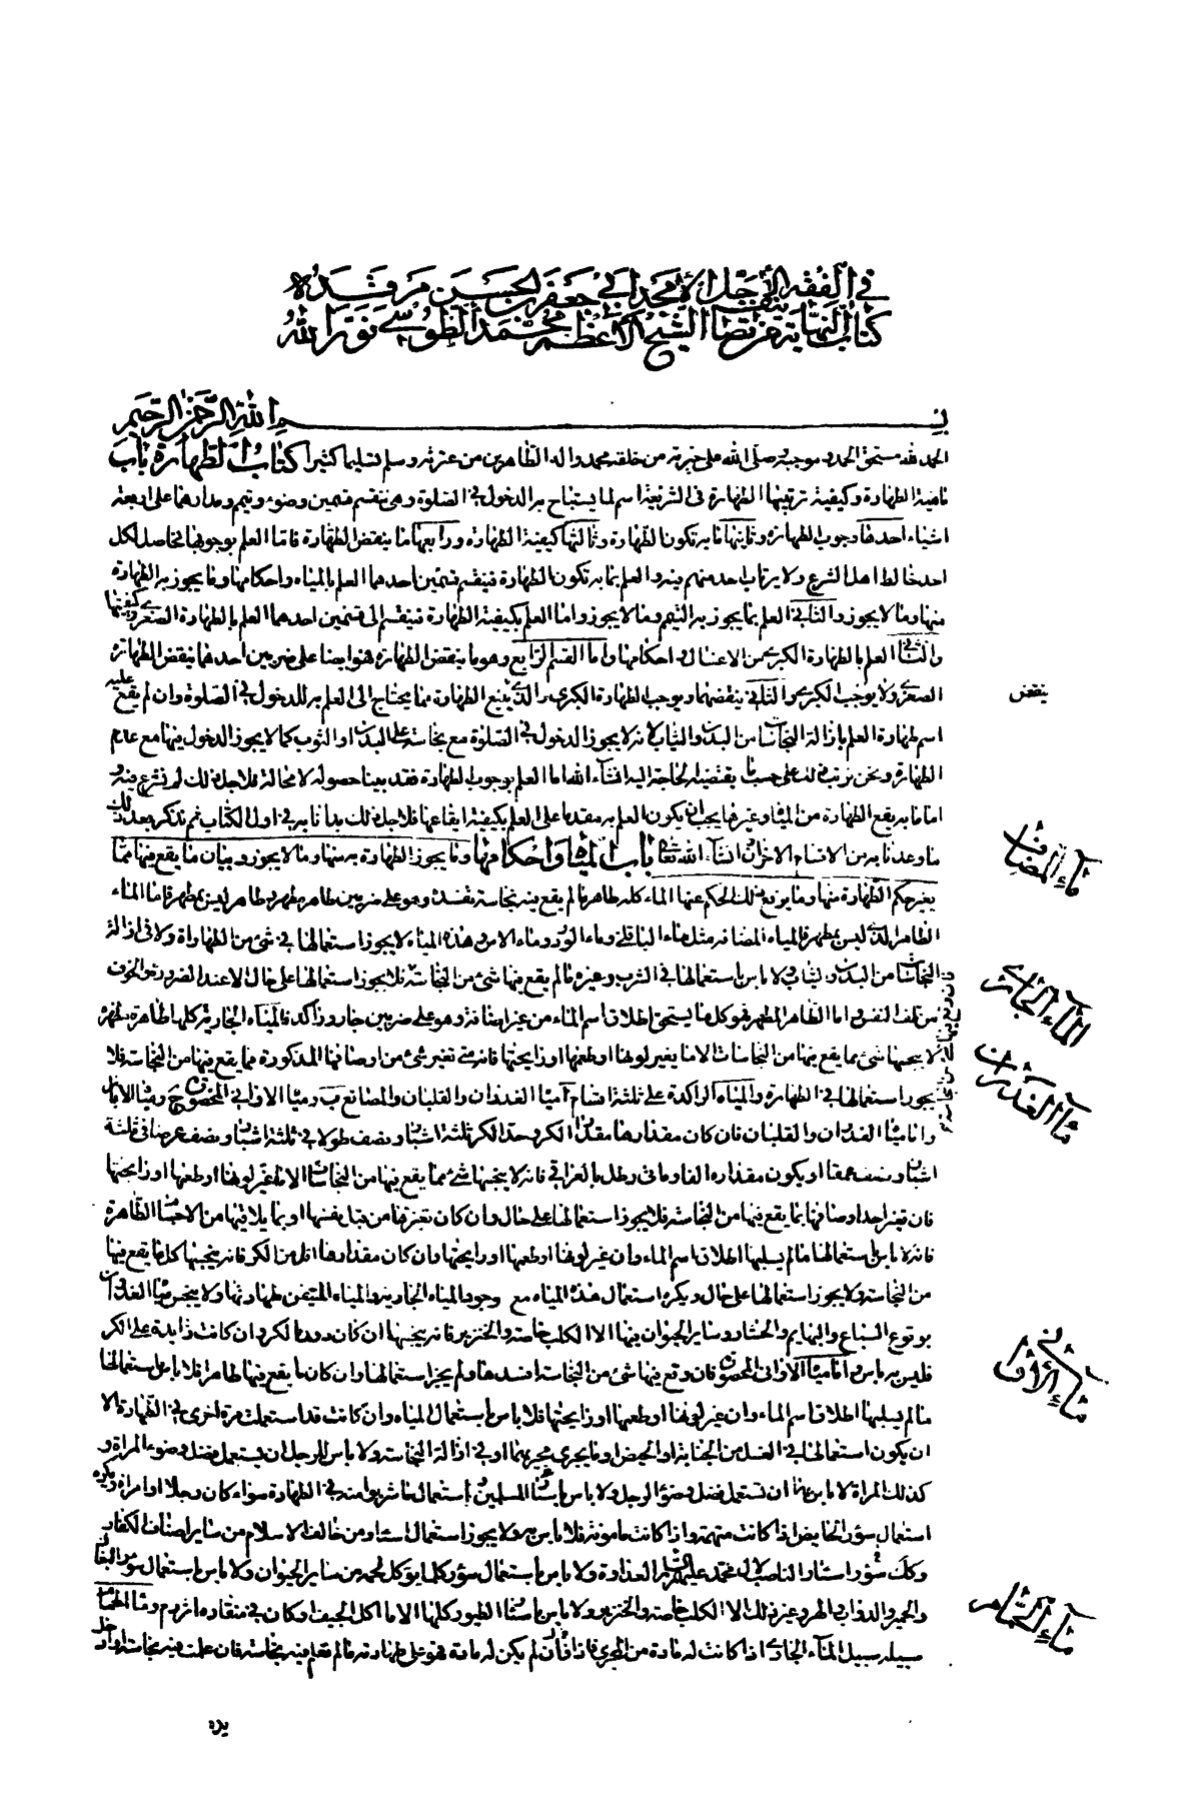 في الفقه الأجل الأمجد أبي جعفر الحسن مرقده
كتاب النهاية من تصانيف الشيخ الأعظم محمد الطوسي نور الله
بسم الله الرحمن الرحيم
الحمد لله مستحق الحمد وموجبه وصلى الله على خيرته من خلقه محمد واله الطاهرين من عترته وسلم تسليما كثيرا كتاب الطهارة باب
ماهية الطهارة وكيفية ترتيبها الطهارة في الشريعة اسم لما يستباح به الدخول في الصلوة وهي تنقسم قسمين وضوء وتيمم ومدارهما على اربعة
اشياء احدها وجوب الطهارة وثانيها ما به تكون الطهارة وثالثها كيفية الطهارة ورابعها ما ينقض الطهارة فاما العلم بوجوبها فحاصل لكل
احد خالط اهل الشرع ولا يرتاب احد منهم فيه والعلم بما به تكون الطهارة فينقسم قسمين احدهما العلم بالمياه واحكامها وما يجوز به الطهارة
منها وما لا يجوز والثاني العلم بما يجوز به التيمم وما لا يجوز واما العلم بكيفية الطهارة فينقسم الى قسمين احدهما العلم بالطهارة الصغرى وكيفيتها
والثاني العلم بالطهارة الكبرى من الاغسال واحكامها واما القسم الرابع وهو ما ينقض الطهارة فهو ايضا على ضربين احدهما ينقض الطهارة
الصغرى ولا يوجب الكبرى والثاني ينقضهما ويوجب الطهارة الكبرى والذي يتبع الطهارة مما يحتاج الى العلم به للدخول في الصلوة وان لم يقع عليه
ينقض
اسم طهارة العلم بازالة النجاسات من البدن والثياب لانه لا يجوز الدخول في الصلوة مع نجاسة على البدن او الثوب كما لا يجوز الدخول فيها مع عدم
الطهارة ونحن نرتب ذلك على حسب ما يقتضيه الحاجة اليه انشاء الله اما العلم بوجوب الطهارة فقد بينا حصوله لا محالة فلاجل ذلك لم نشرع فيه و
اما ما به يقع الطهارة من المياه وغيرها يجب ان يكون العلم به مقدما على العلم بكيفية ايقاعها فلاجل ذلك بدأنا به في اول الكتاب ثم نذكر بعد ذلك
ما وعدنا به من الاقسام الاخر ان انشاء الله تعالى باب المياه واحكامها وما يجوز الطهارة به منها وما لا يجوز وبيان ما يقع فيها مما
ماء المضاف
يغير حكم الطهارة منها وما يرتفع بذلك الحكم عنها الماء كله طاهر ما لم يقع فيه نجاسة تفسده وهو على ضربين طاهر مطهر وطاهر ليس بمطهر فاما الماء
الطاهر الذي ليس بمطهر فالمياه المضافة مثل ماء الباقلى وماء الورد وماء الاس وهذه المياه لا يجوز استعمالها في شئ من الطهارات ولا في ازالة
النجاسات من البدن والثياب ولا باس باستعمالها في الشرب وغيره ما لم يقع فيها شئ من النجاسة فلا يجوز استعمالها على حال الا عند الضرورة والخوف
الماء الجاري
من تلف النفس واما الطاهر المطهر فهو كل ما يستحق اطلاق اسم الماء من غير اضافة وهو على ضربين جار وراكد فالمياه الجارية كلها طاهرة مطهرة
لا ينجسها شئ مما يقع فيها من النجاسات الا ما يغير لونها او طعمها او رايحتها فانه متى تغير شئ من اوصافها المذكورة مما يقع فيها من النجاسة فلا
ماء الغدران
يجوز استعمالها في الطهارة والمياه الراكدة على ثلثة اقسام مياه الغدران والقلبان والمصانع ومياه الاواني المحصورة ومياه الابار
واما مياه الغدران والقلبان فان كان مقدارها مقدار الكر وحد الكر ثلثة اشبار ونصف طولا في ثلثة اشبار ونصف عرضا في ثلثة
اشبار ونصف عمقا او يكون مقداره الفا ومائتي رطل بالعراقي فانه لا ينجسها شئ مما يقع فيها من النجاسات الا ما غير لونها او طعمها او رايحتها
فان تغير احد اوصافها بما يقع فيها من النجاسة فلا يجوز استعمالها على حال وان كان تغيرها من قبل نفسها او بما يلاقيها من الاجسام الطاهرة
فانه لا باس باستعمالها ما لم يسلبها اطلاق اسم الماء وان غير لونها او طعمها او رايحتها وان كان مقدارها اقل من الكر فانه ينجسها كل ما يقع فيها
من النجاسة ولا يجوز استعمالها على حال ويكره استعمال هذه المياه مع وجود المياه الجارية والمياه المتيقن طهارتها ولا ينجس مياه الغدران
بوقوع السباع والبهايم والحشار وساير الحيوان فيها الا الكلب خاصة والخنزير فانه ينجسها ان كان دون الكر وان كانت زايدة على الكر
فليس به باس واما مياه الاواني المحصورة فان وقع فيها شئ من النجاسة افسدها ولم يجز استعمالها وان كان ما يقع فيها طاهرا فلا باس باستعمالها
ماء الأواني
ما لم يسلبها اطلاق اسم الماء وان غير لونها او طعمها او رايحتها فلا باس باستعمال المياه وان كانت قد استعملت مرة اخرى في الطهارة الا
ان يكون استعمالها في الغسل من الجنابة او الحيض او ما يجري مجريهما او في ازالة النجاسة ولا باس للرجل ان يستعمل فضل وضوء المراة و
كذلك المراة لا باس لها ان تستعمل فضل وضوء الرجل ولا باس باسئار المسلمين استعمال ما شربوا منه في الطهارة سواء كان رجلا او امراة ويكره
استعمال سؤر الحايض اذا كانت متهمة واذا كانت مامونة فلا باس به ولا يجوز استعمال اسئار من خالف الاسلام من ساير اصناف الكفار
وكذلك سؤر اسئار الناصب لال محمد عليهم السلام العداوة ولا باس باستعمال سؤر كل ما يؤكل لحمه من ساير الحيوان ولا باس باستعمال سؤر البغال
والحمير والدواب والهر وغير ذلك الا الكلب خاصة والخنزير ولا باس باسئار الطيور كلها الا ما اكل الجيف او كان في منقاره اثر دم وماء الحمام
ماء الحمام
سبيله سبيل الماء الجاري اذا كانت له مادة من المجرى فاذا لم يكن له مادة فهو على طهارته ما لم تعلم فيه نجاسة فان علمت فيه نجاسة او ادخل
يده